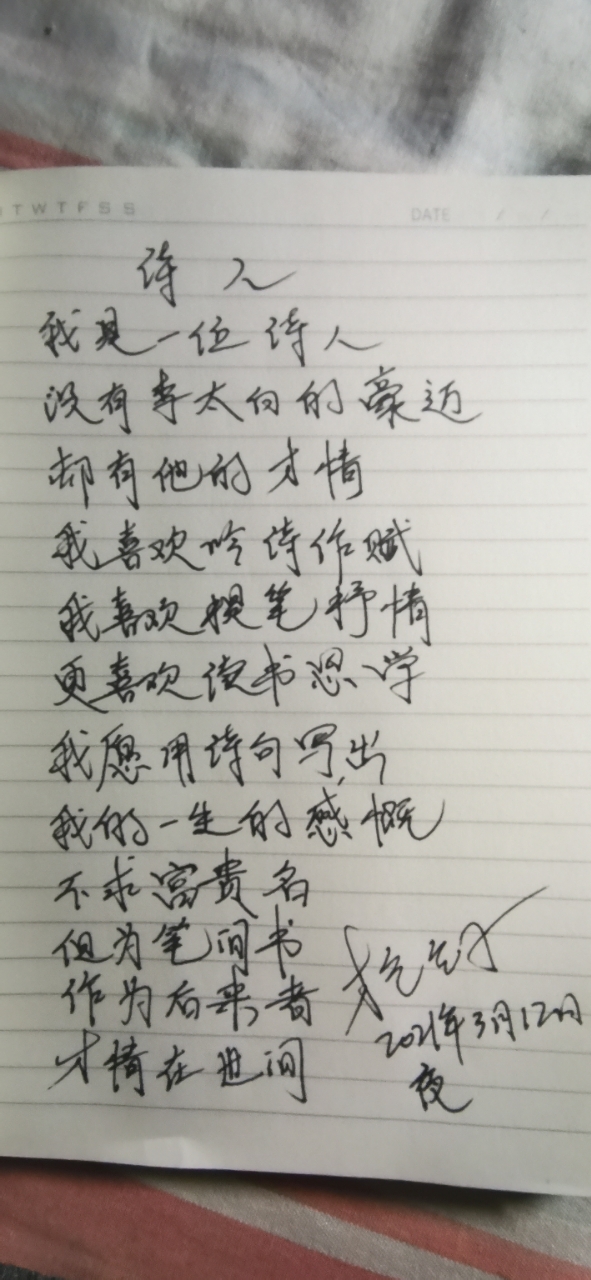 T W T F S S
DATE / /
诗人
我是一位诗人
没有李太白的豪迈
却有他的才情
我喜欢吟诗作赋
我喜欢提笔抒情
更喜欢读书思学
我愿用诗句写出
我的一生的感慨
不求富贵名
但为笔间书
作为后来者
才情在世间
2021年3月12日
夜